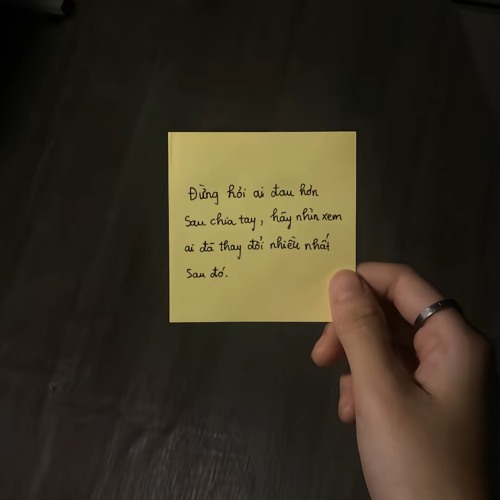 Đừng hỏi ai đau hơn
Sau chia tay, hãy nhìn xem
ai đã thay đổi nhiều nhất
Sau đó.